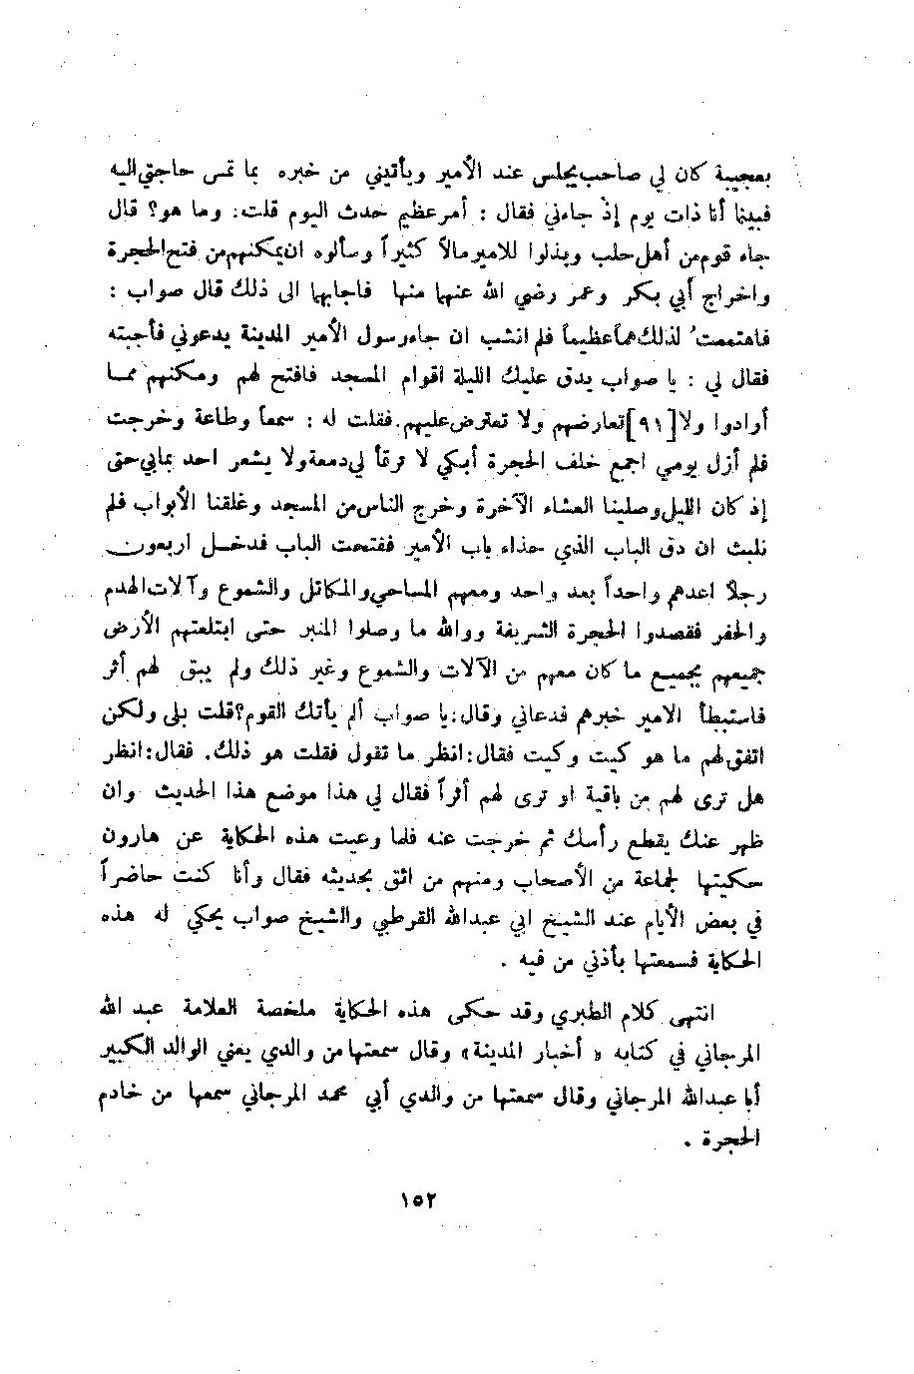 بعجيبة كان لي صاحب يجلس عند الأمير ويأتيني من خبره بما تمس حاجتي اليه
فبينما أنا ذات يوم إذ جاءني فقال : أمر عظيم حدث اليوم قلت: وما هو؟ قال
جاء قوم من أهل حلب وبذلوا للامير مالاً كثيراً وسألوه ان يمكنهم من فتح الحجرة
واخراج أبي بكر وعمر رضي الله عنهما منها فاجابهما الى ذلك قال صواب :
فاهتممتُ لذلك هماً عظيماً فلم انشب ان جاء رسول الأمير المدينة يدعوني فأجبته
فقال لي : يا صواب يدق عليك الليلة اقوام المسجد فافتح لهم ومكنهم مما
أرادوا ولا [٩١] تعارضهم ولا تعترض عليهم. فقلت له : سمعاً وطاعة وخرجت
فلم أزل يومي اجمع خلف الحجرة أبكي لا ترقأ لي دمعة ولا يشعر احد بما بي حتى
إذ كان الليل وصلينا العشاء الآخرة وخرج الناس من المسجد وغلقنا الأبواب فلم
نلبث ان دق الباب الذي حذاء باب الأمير ففتحت الباب فدخل اربعون
رجلاً اعدهم واحداً بعد واحد ومعهم المساحي والمكاتل والشموع وآلات الهدم
والحفر فقصدوا الحجرة الشريفة ووالله ما وصلوا المنبر حتى ابتلعتهم الأرض
جميعهم بجميع ما كان معهم من الآلات والشموع وغير ذلك ولم يبق لهم أثر
فاستبطأ الامير خبرهم فدعاني وقال: يا صواب ألم يأتك القوم؟ قلت بلى ولكن
اتفق لهم ما هو كيت وكيت فقال: انظر ما تقول فقلت هو ذلك. فقال: انظر
هل ترى لهم من باقية او ترى لهم أثراً فقال لي هذا موضع هذا الحديث وان
ظهر عنك يقطع رأسك ثم خرجت عنه فلما وعيت هذه الحكاية عن هارون
حكيتها لجماعة من الأصحاب ومنهم من اثق بحديثه فقال وأنا كنت حاضراً
في بعض الأيام عند الشيخ ابي عبدالله القرطبي والشيخ صواب يحكي له هذه
الحكاية فسمعتها بأذني من فيه .
انتهى كلام الطبري وقد حكى هذه الحكاية ملخصة العلامة عبد الله
المرجاني في كتابه « أخبار المدينة » وقال سمعتها من والدي يعني الوالد الكبير
أبا عبدالله المرجاني وقال سمعتها من والدي أبي محمد المرجاني سمعها من خادم
الحجرة .
١٥٢